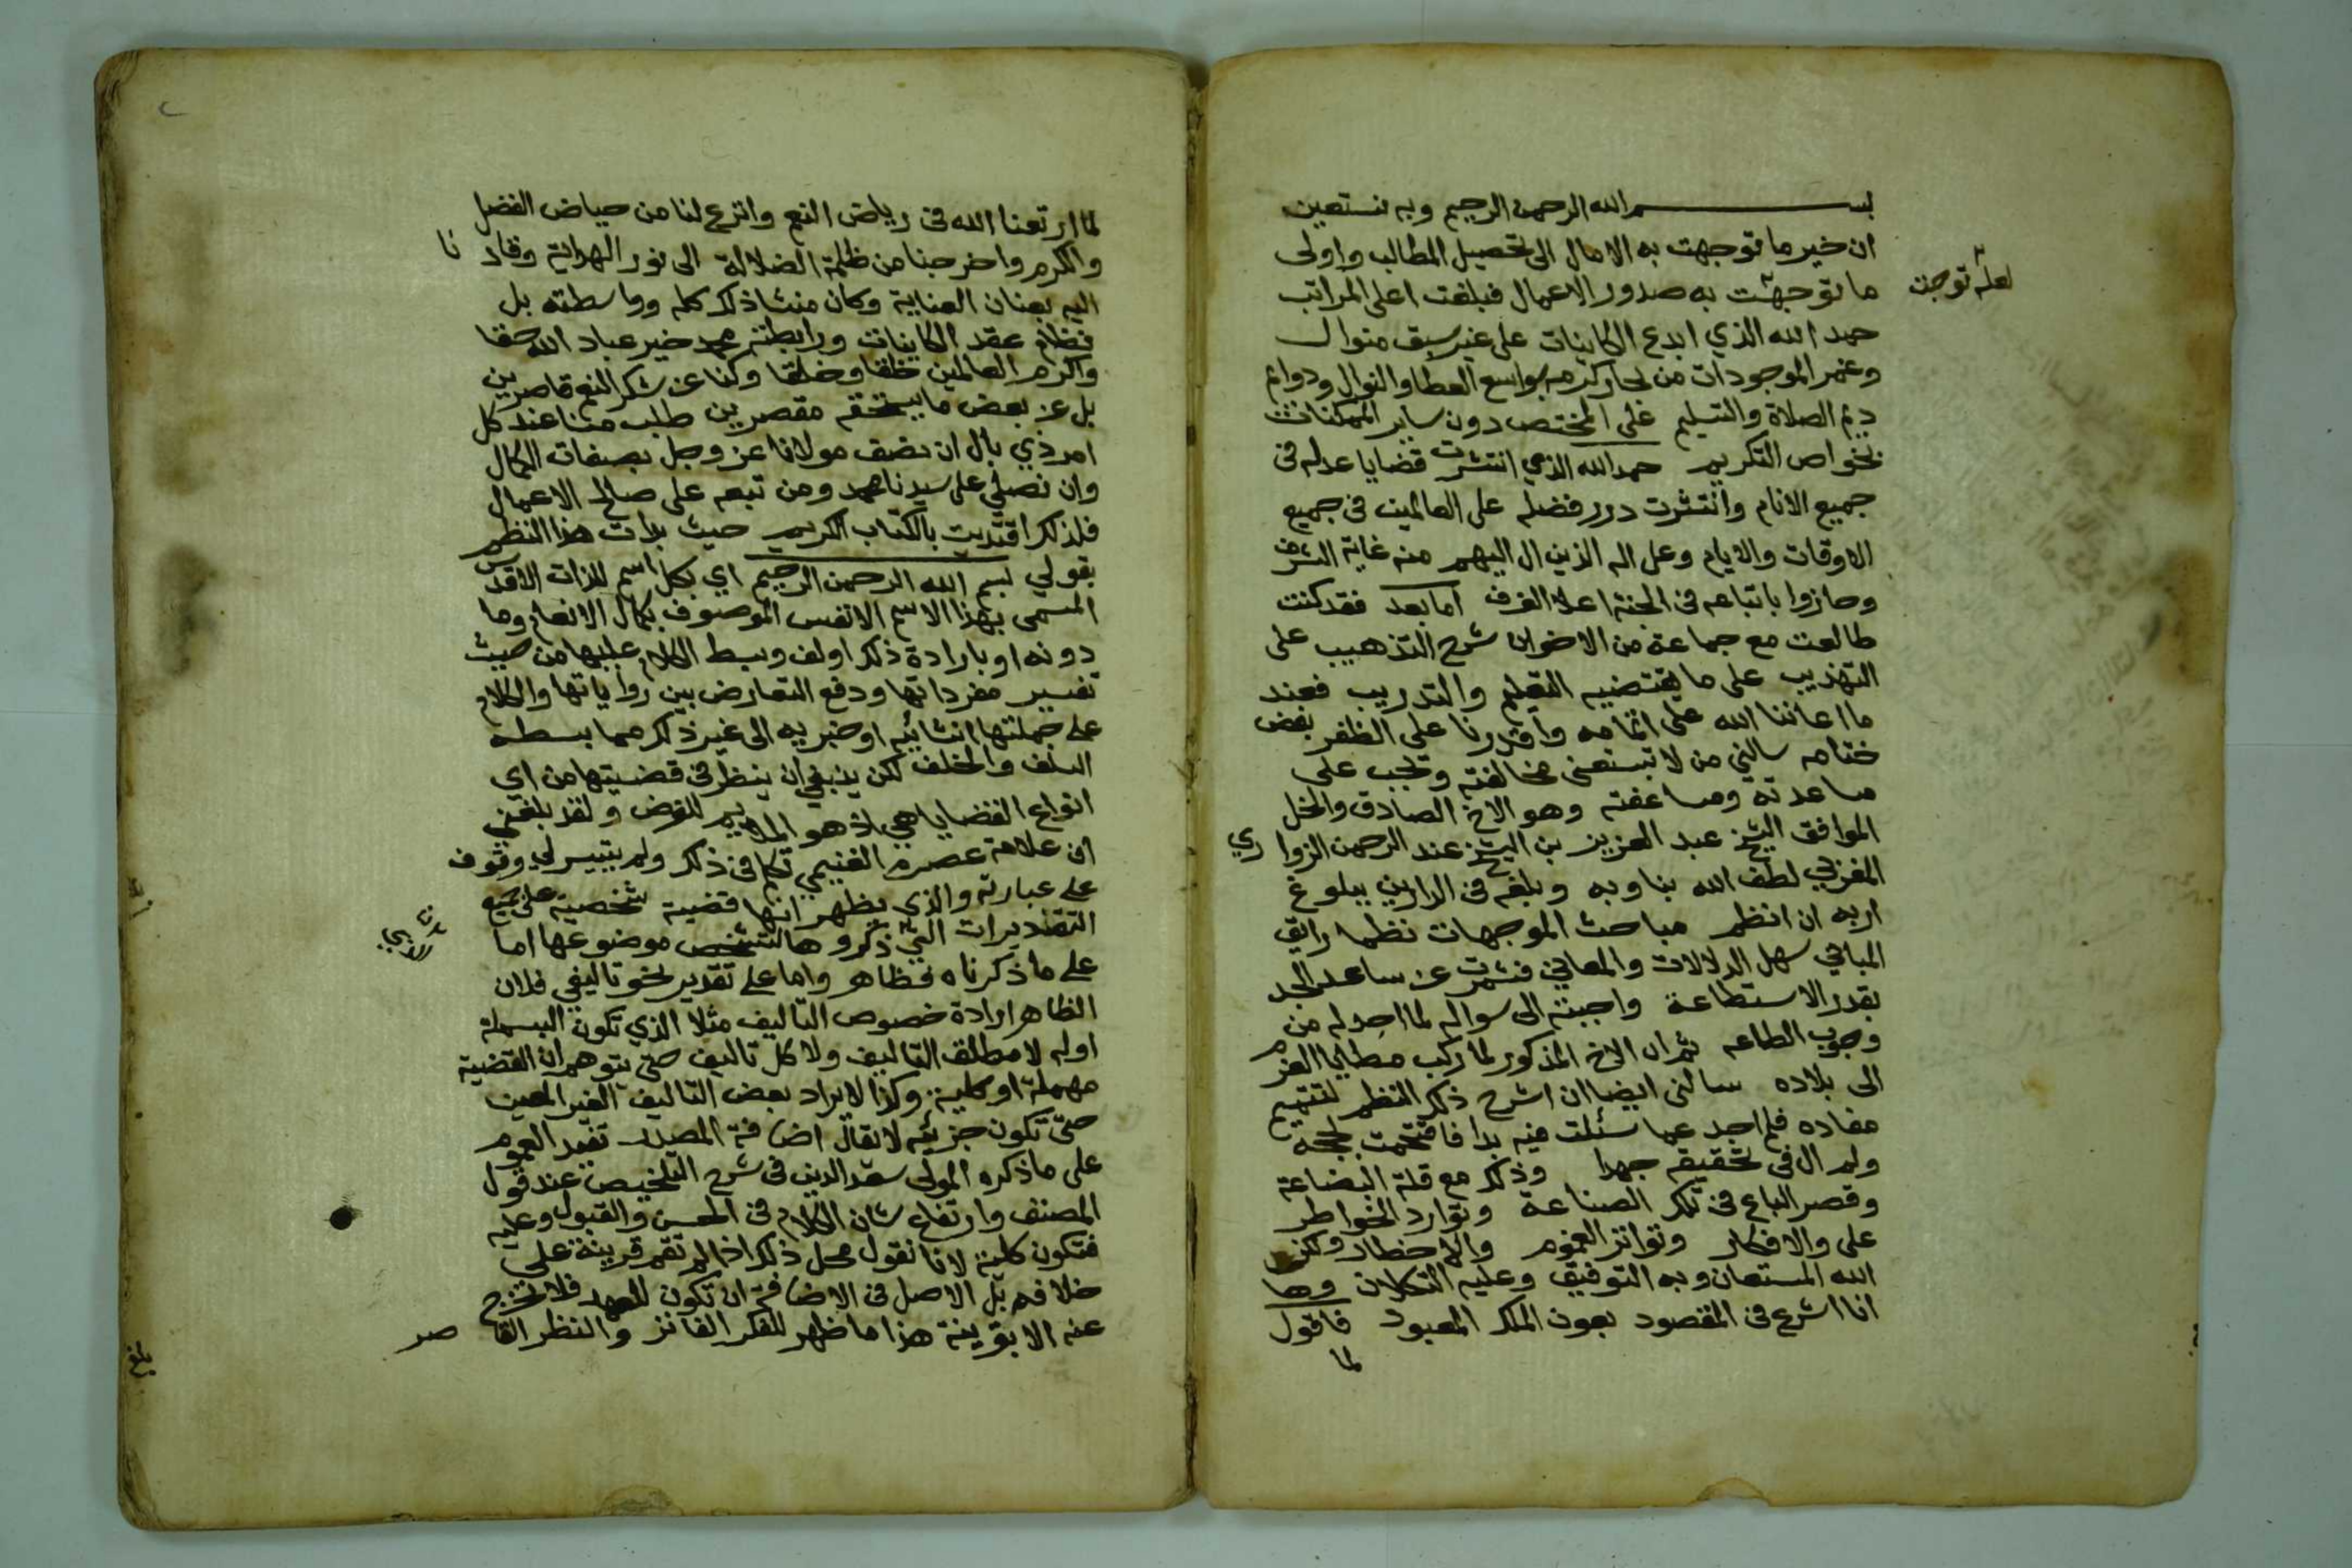 بسم الله الرحمن الرحيم وبه نستعين
ان خير ما توجهت به الامال الى تحصيل المطالب واولى
ما توجهت به صدور الاعمال فبلغت اعلى المراتب
لعله توجت
حمد الله الذي ابدع الكاينات على غير سبق منوال
وغمر الموجودات من بحار كرمه بواسع العطا والنوال ودوام
ديم الصلاة والتسليم على المختص دون ساير الممكنات
بخواص التكريم حمد الله الذي انتشرت قضايا عدله فى
جميع الانام وانتثرت درر فضله على العالمين فى جميع
الاوقات والايام وعلى اله الذين ال اليهم منه غاية الشرف
وحازوا باتباعه فى الجنة اعلا الغرف اما بعد فقد كنت
طالعت مع جماعة من الاخوان شرح التذهيب على
التهذيب على ما يقتضيه التعليم والتدريب فعند
ما اعاننا الله على اتمامه واقدرنا على الظفر بفض
ختامه سالني من لا تسعني مخالفته وتجب على
مساعدته ومساعفته وهو الاخ الصادق والخل
الموافق الشيخ عبد العزيز بن الشيخ عبد الرحمن الزواري
المغربي لطف الله بنا وبه وبلغه فى الدارين بلوغ
اربه ان انظم مباحث الموجهات نظما رايق
المباني سهل الدلالات والمعاني فشمرت عن ساعد الجد
بقدر الاستطاعة واجبته الى سواله لما اجد له من
وجوب الطاعه ثم ان الاخ المذكور لما ركب مطايا العزم
الى بلاده سالنى ايضا ان اشرح ذلك النظم لتتميم
مفاده فلم اجد عما سئلت فيه بدا فاقتحمت لججه
ولم ال فى تحقيقه جهدا وذلك مع قلة البضاعة
وقصر الباع فى تلك الصناعة وتوارد الخواطر
على والافكار وتواتر الهموم والاخطار ولكن
الله المستعان وبه التوفيق وعليه التكلان وها
انا اشرع فى المقصود بعون الملك المعبود فاقول
لما
لما ارتعنا الله فى رياض النعم واترع لنا من حياض الفضل
والكرم واخرجنا من ظلمة الضلالة الى نور الهداية وقادنا
اليه بعنان العناية وكان منشا ذلك كله وواسطته بل
نظام عقد الكاينات ورابطته محمد خير عباد الله حقا
واكرم العالمين خلقا وخلقا وكنا عن شكر النعم قاصرين
بل عن بعض ما يستحقه مقصرين طلب منا عند كل
امر ذي بال ان نصف مولانا عز وجل بصفات الكمال
وان نصلي على سيدنا محمد ومن تبعه على صالح الاعمال
فلذلك اقتديت بالكتاب الكريم حيث بدات هذا النظم
بقولي بسم الله الرحمن الرحيم اي بكل اسم للذات الاقدس
المسمى بهذا الاسم الانفس الموصوف بكمال الانعام وما
دونه او بارادة ذلك اولف وبسط الكلام عليها من حيث
تفسير مفرداتها ودفع التعارض بين رواياتها والكلام
على جملتها انشائية او خبريه الى غير ذلك مما بسطه
السلف والخلف لكن ينبغي ان ينظر فى قضيتها من اي
انواع القضايا هي اذ هو الملايم للغرض ولقد بلغني
ان علامة عصره الغنيمي تكلم فى ذلك ولم يتيسر لي وقوف
على عبارته والذي يظهر انها قضية شخصية على جميع
التقديرات التي ذكروها لتشخص موضوعها اما
على ما ذكرناه فظاهر واما على تقدير نحو تاليفي فلان
الظاهر ارادة خصوص التاليف مثلا الذي تكون البسملة
اوله لا مطلق التاليف ولا كل تاليف حتى يتوهم ان القضية
مهملة او كلية وكذا لا يراد بعض التاليف الغير المعين
حتى تكون جزئية لا يقال اضافة المصدر تفيد العموم
على ما ذكره المولى سعد الدين فى شرح التلخيص عند قول
المصنف وارتفاع شان الكلام فى الحسن والقبول وعليه
فتكون كلية لانا نقول محل ذلك اذا لم تقم قرينة على
خلافه بل الاصل فى الاضافة ان تكون للعهد فلا تخرج
عنه الا بقرينة هذا ما ظهر للفكر الفاتر والنظر القاصر
بلغ